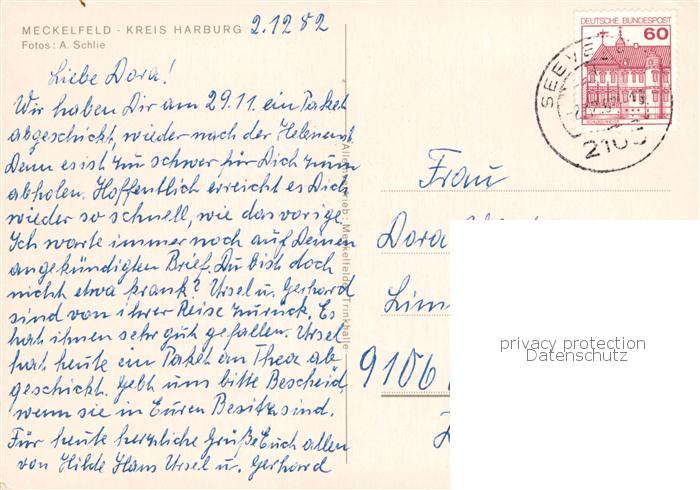 MECKELFELD - KREIS HARBURG
Fotos: A. Schlie
2.12 82
Liebe Dora!
Wir haben Dir am 29.11. ein Paket
abgeschickt, wieder nach der Helenenst.
Denn es ist zu schwer für Dich zum
abholen. Hoffentlich erreicht es Dich
wieder so schnell, wie das vorige.
Ich warte immer noch auf Deinen
angekündigten Brief. Du bist doch
nicht etwa krank? Ursel u. Gerhard
sind von ihrer Reise zurück. Es
hat ihnen sehr gut gefallen. Ursel
hat heute ein Paket an Thea ab
geschickt. Gebt uns bitte Bescheid,
wenn sie in Euren Besitz sind.
Für heute herzliche Grüße Euch allen
von Hilde Hans Ursel u. Gerhard
Alleinvertrieb: Meckelfelder Trinkhalle
DEUTSCHE BUNDESPOST
60
SEEVE
2105
Frau
Dora
Lim
9106
privacy protection
Datenschutz